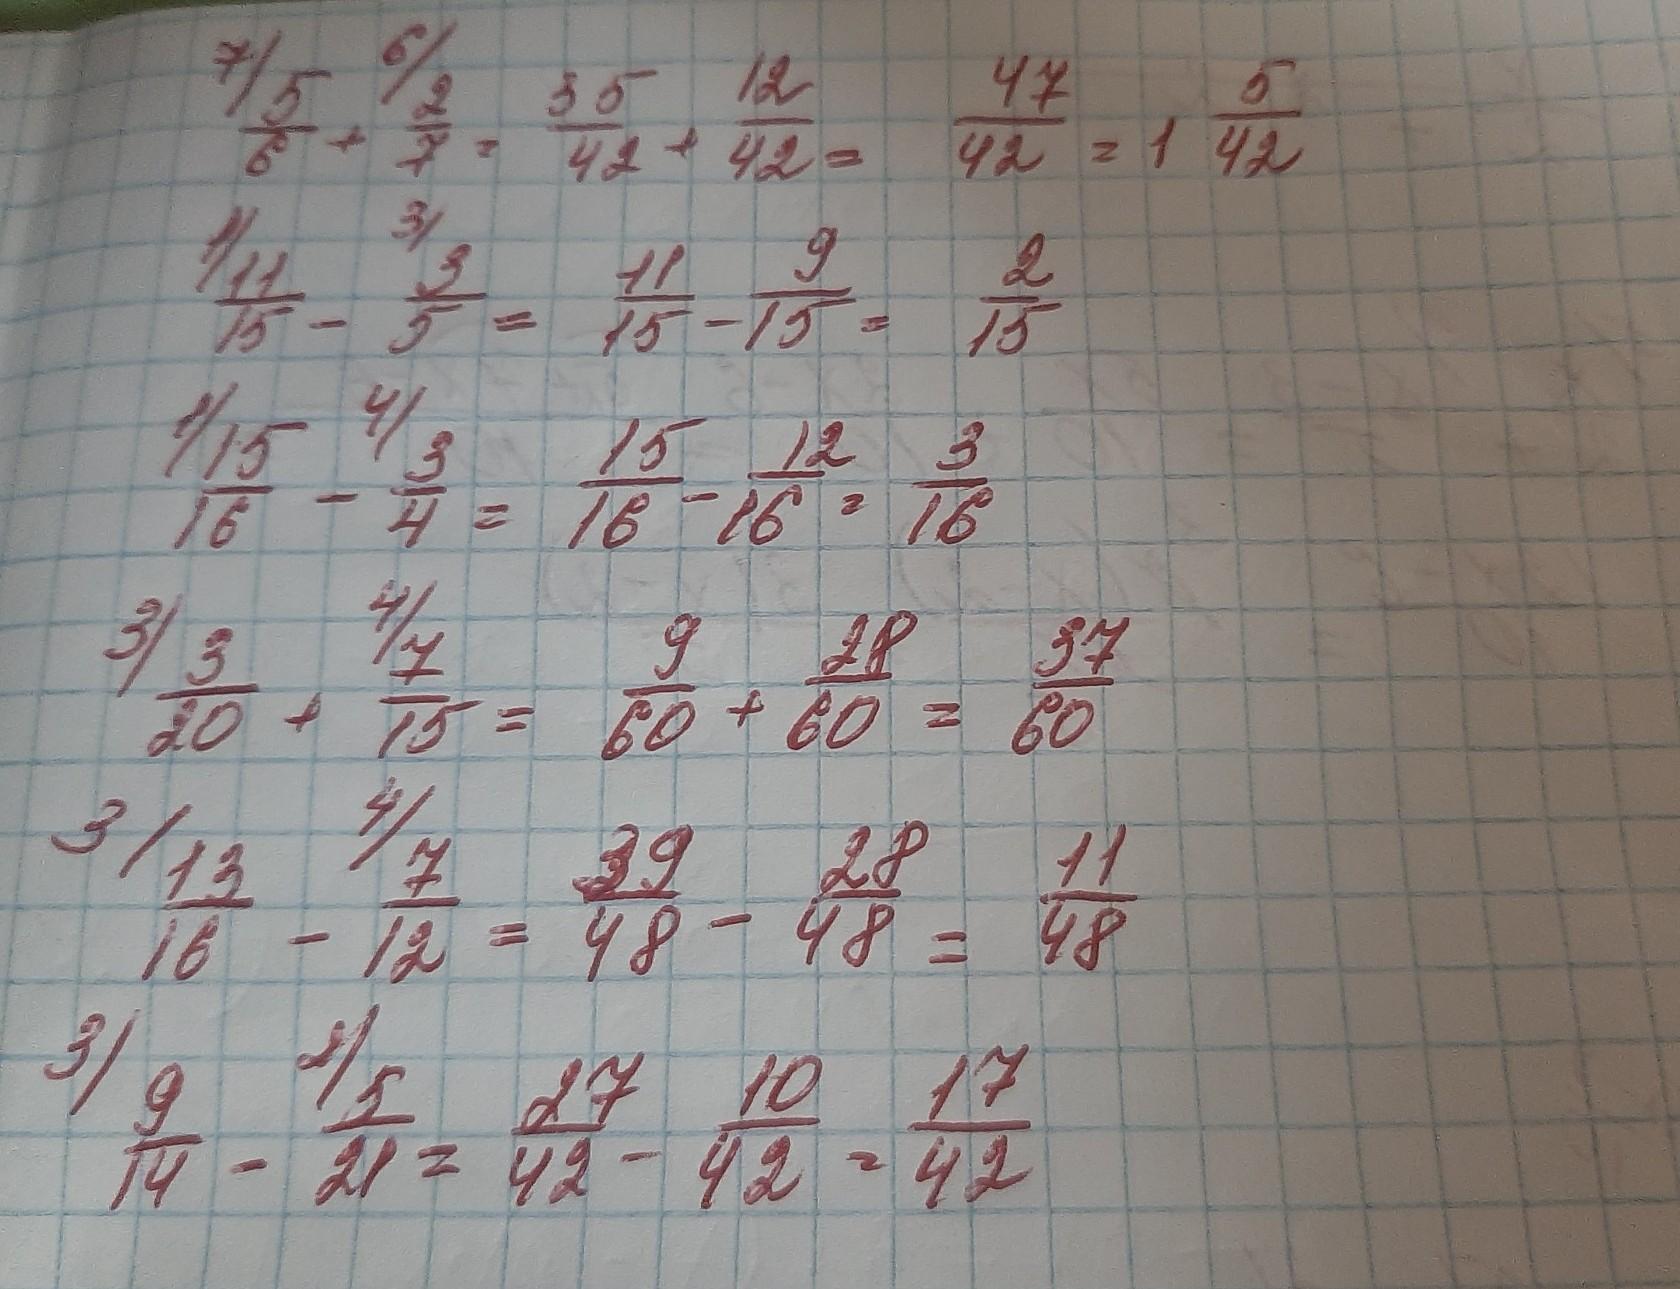 7/ 5/6 + 6/ 2/7 = 35/42 + 12/42 = 47/42 = 1 5/42
1/ 11/15 - 3/ 3/5 = 11/15 - 9/15 = 2/15
1/ 15/16 - 4/ 3/4 = 15/16 - 12/16 = 3/16
3/ 3/20 + 4/ 7/15 = 9/60 + 28/60 = 37/60
3/ 13/16 - 4/ 7/12 = 39/48 - 28/48 = 11/48
3/ 9/14 - 2/ 5/21 = 27/42 - 10/42 = 17/42